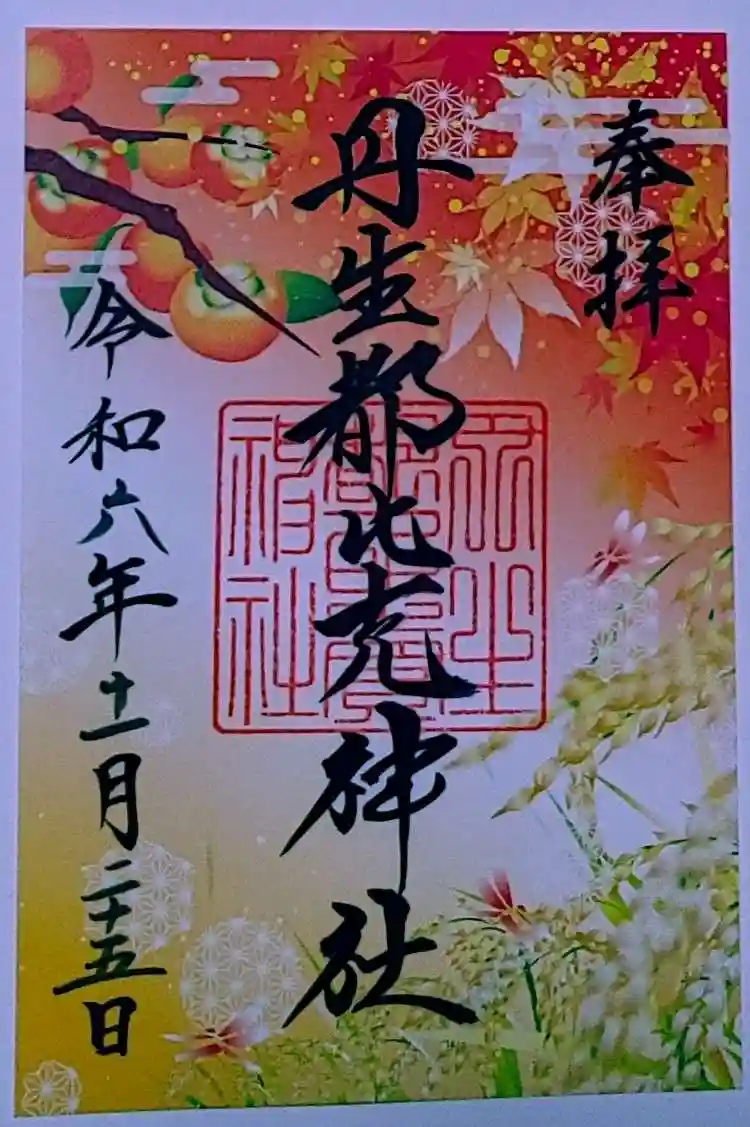 奉拝
丹生都比売神社
令和六年十一月二十五日
丹生
神社